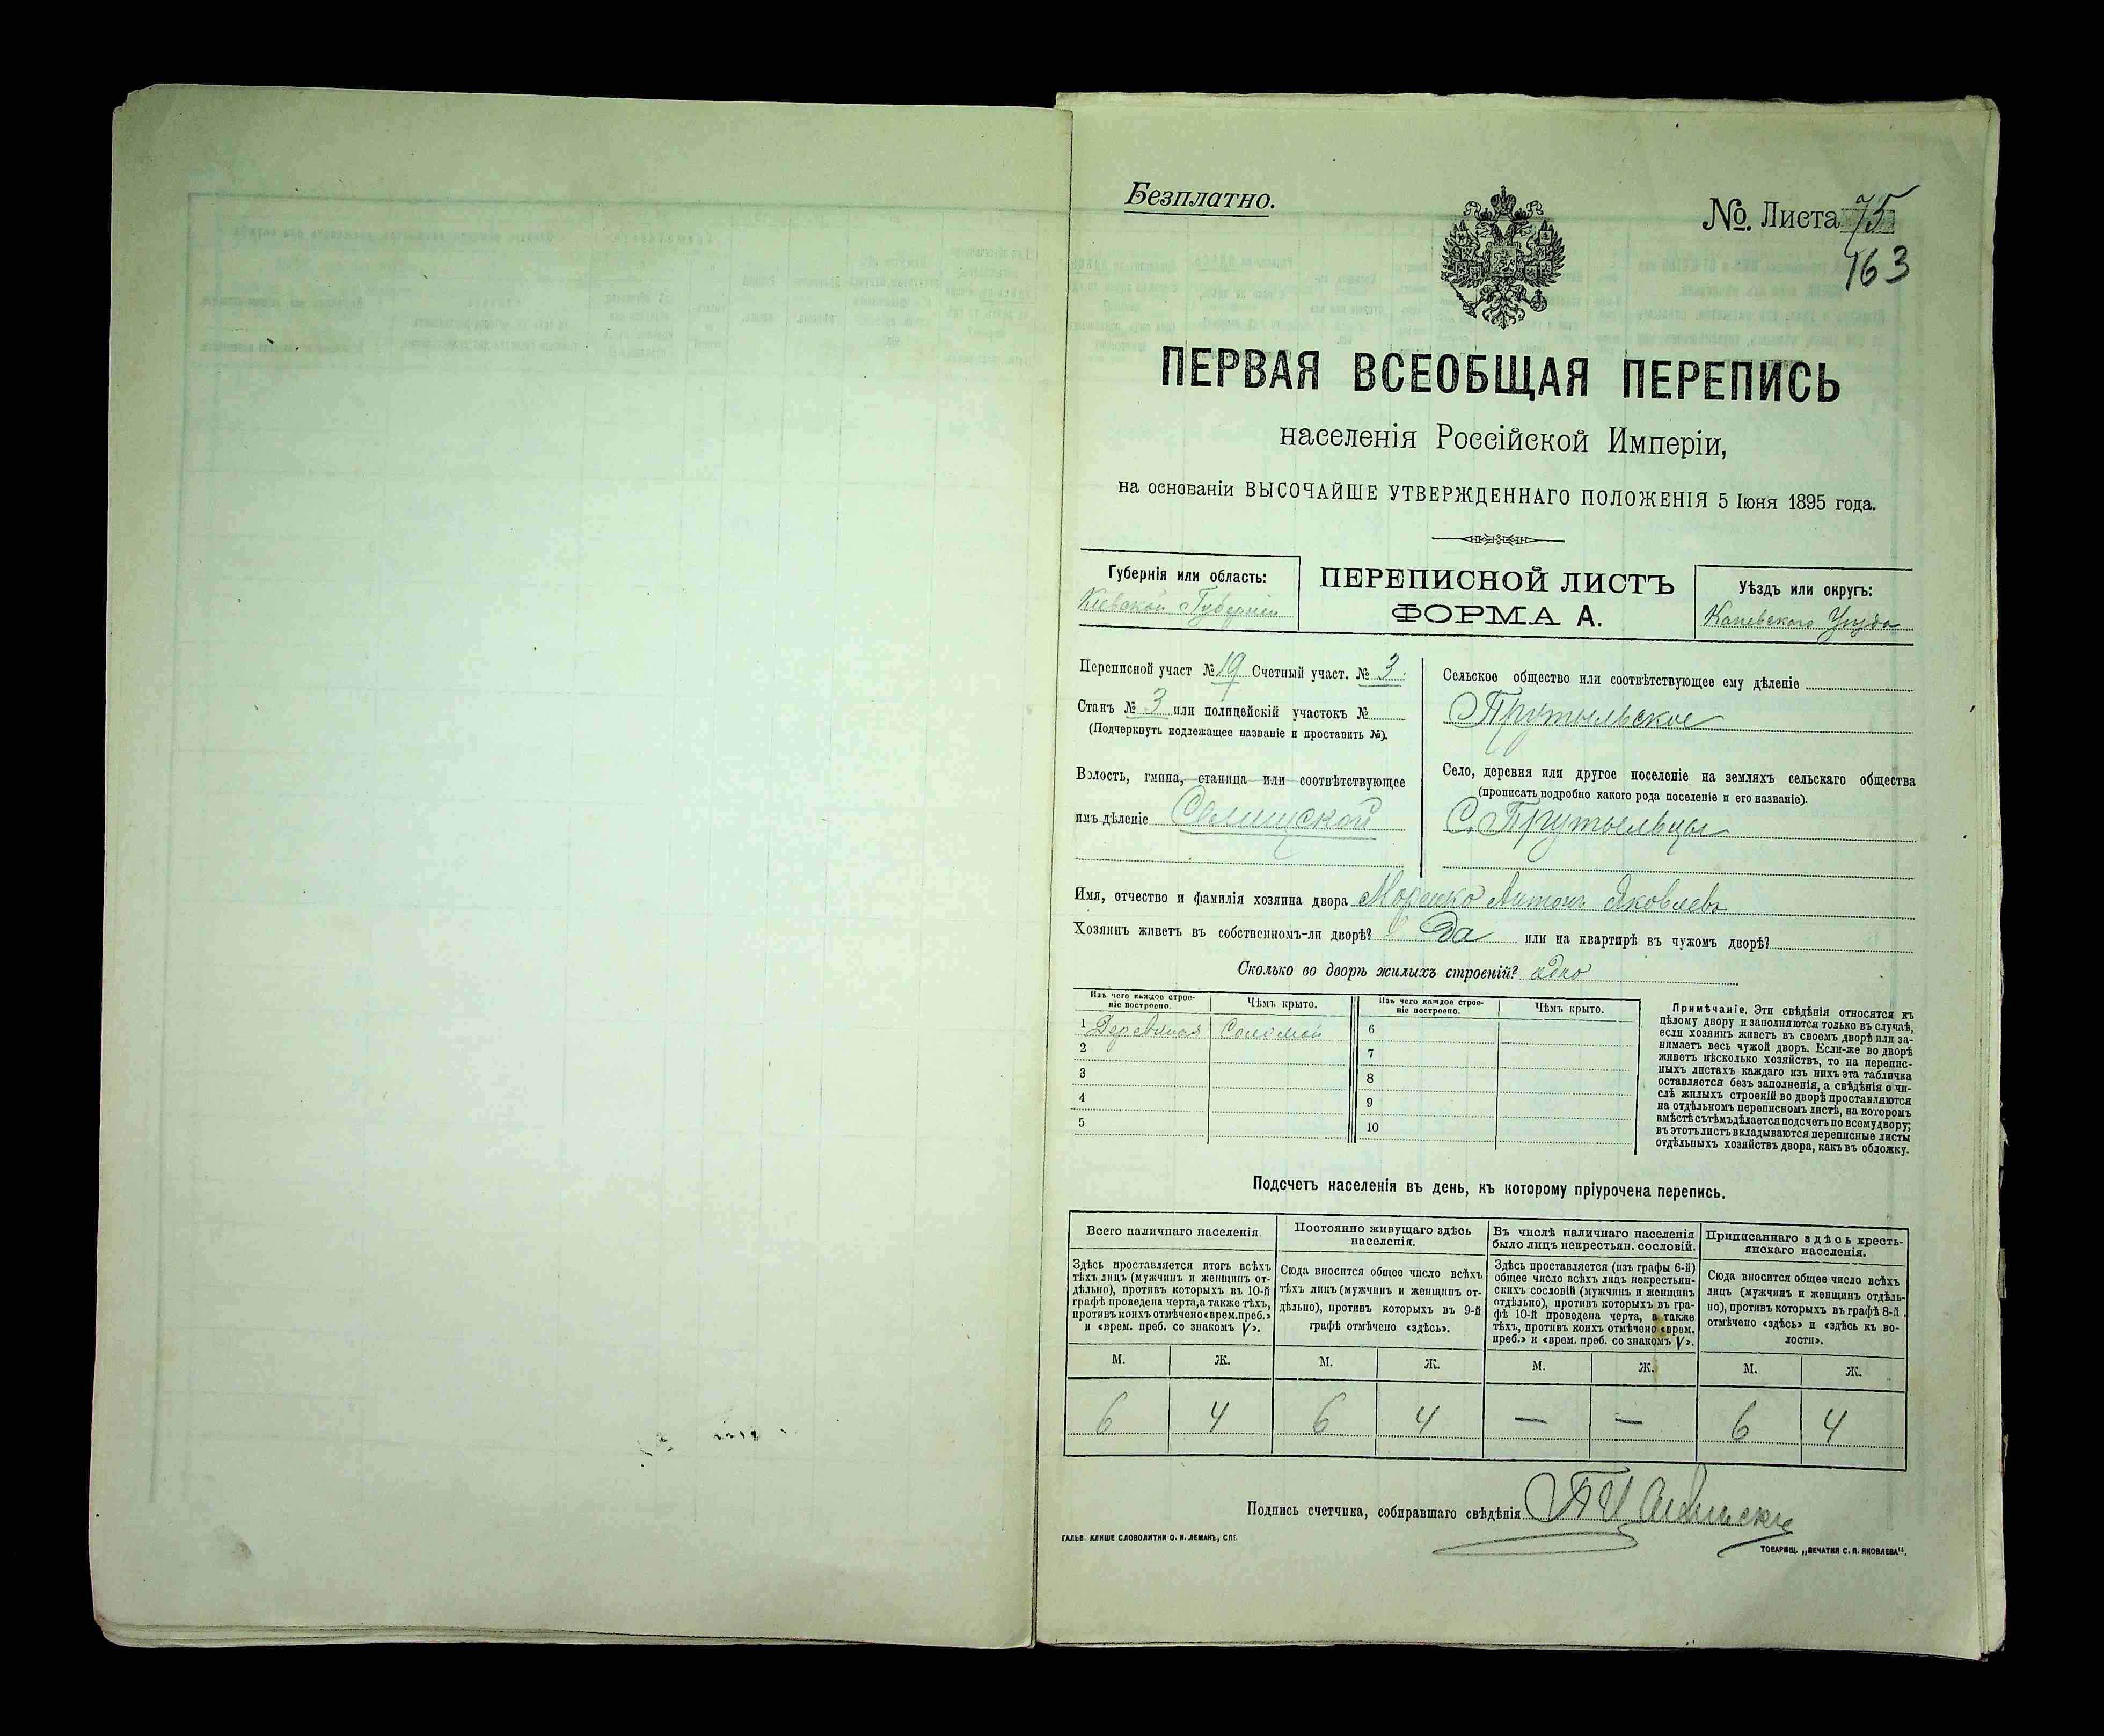 Безплатно.
№. Листа 75
163
ПЕРВАЯ ВСЕОБЩАЯ ПЕРЕПИСЬ
населенія Россійской Имперіи,
на основаніи ВЫСОЧАЙШЕ УТВЕРЖДЕННАГО ПОЛОЖЕНІЯ 5 Іюня 1895 года.
Губернія или область:
Кіевской Губерніи
ПЕРЕПИСНОЙ ЛИСТЪ
ФОРМА А.
Уѣздъ или округъ:
Каневского Уѣзда
Переписной участ № 19 Счетный участ. № 3.
Станъ № 3 или полицейскій участокъ №
(Подчеркнуть подлежащее названіе и проставить №).
Волость, гмина, станица или соотвѣтствующее
имъ дѣленіе
Сельское общество или соотвѣтствующее ему дѣленіе
Прутыльское
Село, деревня или другое поселеніе на земляхъ сельскаго общества
(прописать подробно какого рода поселеніе и его названіе).
С. Прутыльцы
Имя, отчество и фамилія хозяина двора Моренко Антонъ Яковлевъ
Хозяинъ живетъ въ собственномъ-ли дворѣ? Да или на квартирѣ въ чужомъ дворѣ?
Сколько во дворѣ жилыхъ строеній? одно
Изъ чего каждое строе-
ніе построено.
Чѣмъ крыто.
Изъ чего каждое строе-
ніе построено.
Чѣмъ крыто.
1 Деревяная Соломой 6
2 7
3 8
4 9
5 10
Примѣчаніе. Эти свѣдѣнія относятся къ
цѣлому двору и заполняются только въ случаѣ,
если хозяинъ живетъ въ своемъ дворѣ или за-
нимаетъ весь чужой дворъ. Если-же во дворѣ
живетъ нѣсколько хозяйствъ, то на перепис-
ныхъ листахъ каждаго изъ нихъ эта табличка
оставляется безъ заполненія, а свѣдѣнія о чи-
слѣ жилыхъ строеній во дворѣ проставляются
на отдѣльномъ переписномъ листѣ, на которомъ
вмѣстѣ съ тѣмъ дѣлается подсчетъ по всему двору;
въ этотъ листъ вкладываются переписные листы
отдѣльныхъ хозяйствъ двора, какъ въ обложку.
Подсчетъ населенія въ день, къ которому пріурочена перепись.
Всего наличнаго населенія
Здѣсь проставляется итогъ всѣхъ
тѣхъ лицъ (мужчинъ и женщинъ от-
дѣльно), противъ которыхъ въ 10-й
графѣ проведена черта, а также тѣхъ,
противъ коихъ отмѣчено «врем. преб.»
и «врем. преб. со знакомъ V».
Постоянно живущаго здѣсь
населенія.
Сюда вносится общее число всѣхъ
тѣхъ лицъ (мужчинъ и женщинъ от-
дѣльно), противъ которыхъ въ 9-й
графѣ отмѣчено «здѣсь».
Въ числѣ наличнаго населенія
было лицъ некрестьян. сословій.
Здѣсь проставляется (изъ графы 6-й)
общее число всѣхъ лицъ некрестьян-
скихъ сословій (мужчинъ и женщинъ
отдѣльно), противъ которыхъ въ гра-
фѣ 10-й проведена черта, а также
тѣхъ, противъ коихъ отмѣчено «врем.
преб.» и «врем. преб. со знакомъ V».
Приписаннаго здѣсь кресть-
янскаго населенія.
Сюда вносится общее число всѣхъ
лицъ (мужчинъ и женщинъ отдѣль-
но), противъ которыхъ въ графѣ 8-й
отмѣчено «здѣсь» и «здѣсь къ во-
лости».
М. Ж. М. Ж. М. Ж. М. Ж.
6 4 6 4 — — 6 4
Подпись счетчика, собиравшаго свѣдѣнія
ГАЛЬВ. КЛИШЕ СЛОВОЛИТНИ О. И. ЛЕМАНЪ, СПБ.
ТОВАРИЩ. „ПЕЧАТНЯ С. П. ЯКОВЛЕВА".